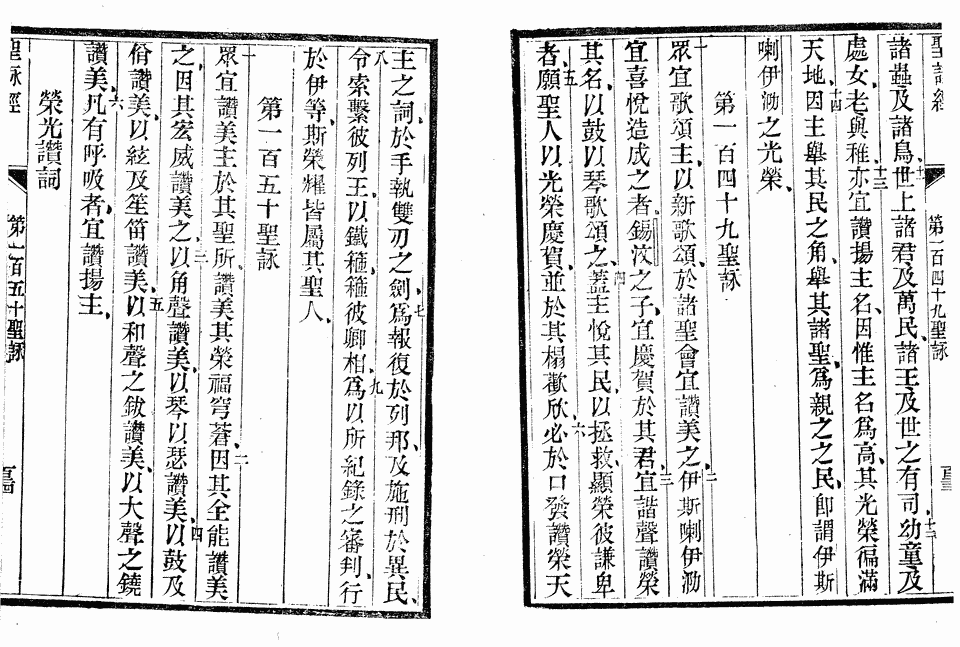 聖詠經
第一百四十九聖詠
諸蟲及諸鳥、十一世上諸君及萬民、諸王及世之有司、十二幼童及
處女、老與稚、十三亦宜讚揚主名、因惟主名爲高、其光榮徧滿
天地、十四因主舉其民之角、舉其諸聖、爲親之之民、卽謂伊斯
喇伊泐之光榮、
第一百四十九聖詠
一眾宜歌頌主、以新歌頌、於諸聖會宜讚美之、二伊斯喇伊泐
宜喜悅造成之者、錫汶之子、宜慶賀於其君、三宜諧聲讚榮
其名、以鼓以琴歌頌之、四蓋主悅其民、以拯救顯榮彼謙卑
者、五願聖人以光榮慶賀、並於其榻歡欣、六必於口發讚榮天
主之詞、於手執雙刃之劍、七爲報復於列邦、及施刑於異民、
八令索繫彼列王、以鐵䥯䥯彼卿相、九爲以所紀錄之審判、行
於伊等、斯榮耀皆屬其聖人、
第一百五十聖詠
一眾宜讚美主於其聖所、讚美其榮福穹蒼、二因其全能讚美
之、因其宏威讚美之、三以角聲讚美、以琴以瑟讚美、四以鼓及
佾讚美、以絃及笙笛讚美、五以和聲之鈸讚美、以大聲之鐃
讚美、六凡有呼吸者、宜讚揚主、
榮光讚詞
聖詠經
第一百五十聖詠